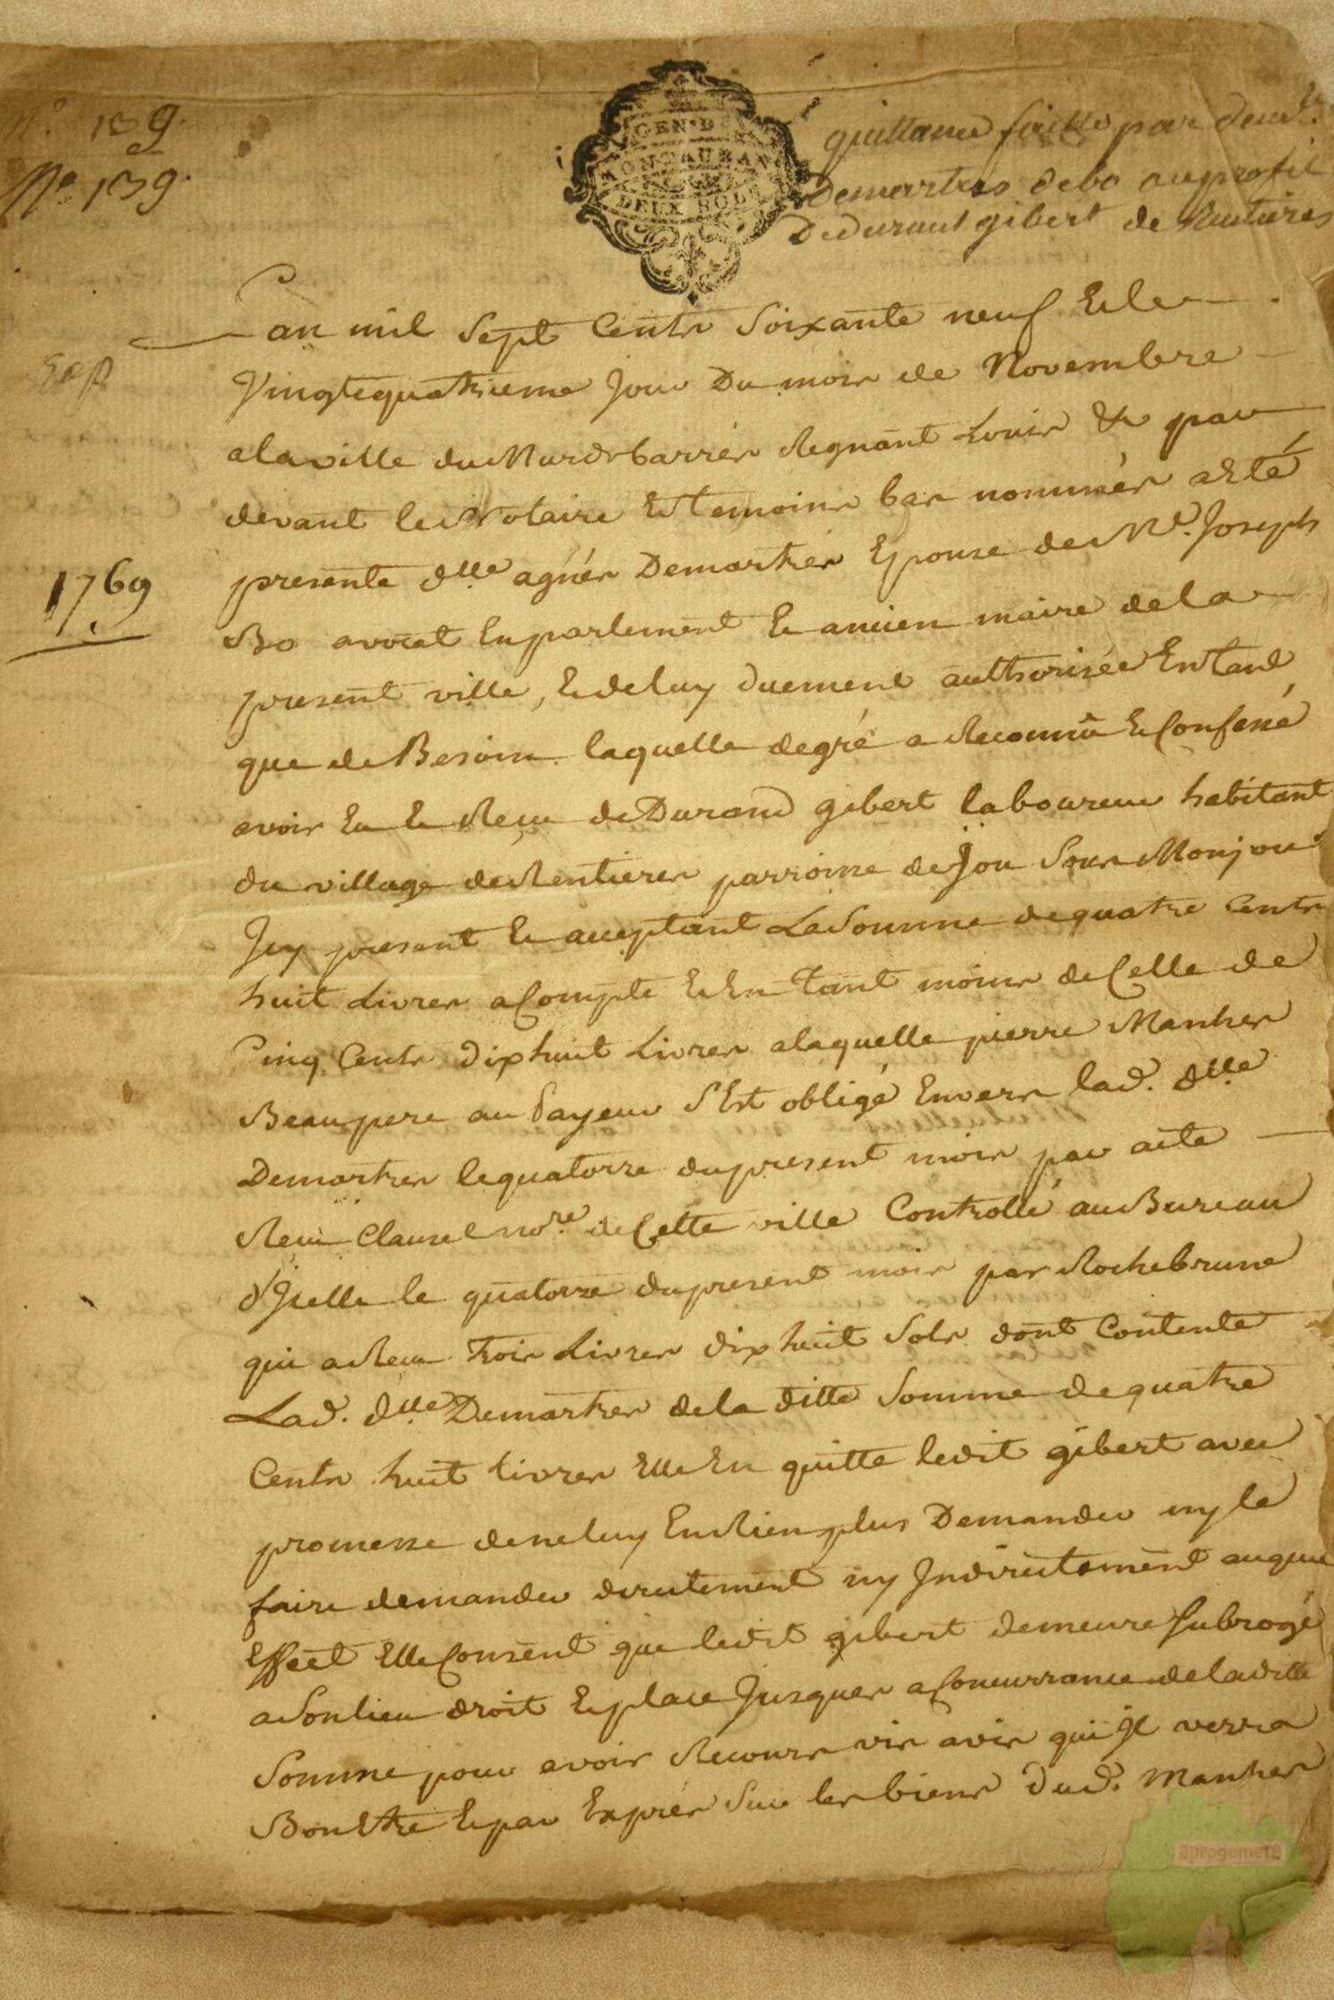 n.° 139.
N.° 139.
GEN. D.
MONTAUBAN
DEUX SOLS
quittance faitte par dem.lle
Demartres de bo au profit
De durant gibert de Rentieres
L'an mil Sept Cents Soixante neuf Et le
Vingtequatrieme Jour Du mois de Novembre
a la ville du Murdebarrés Regnant Louis &c par
devant le Notaire Et temoins bas nommés a Eté
presente dlle agnés Demartres Epouse de Me. Joseph
Bo avocat En parlement Et ancien maire de la
present ville, Et de luy duement authorisée En tant
que de Besoin laquelle de gré a Reconnû Et Confessé
avoir Eu Et Receu de Durand gibert laboureur habitant
du village de Rentieres parroisse de Jou Sous Monjou
Icy present Et acceptant La Somme de quatre Cents
huit Livres a Compte Et En tant moins de Celle de
Cinq Cents dixhuit Livres a laquelle pierre Manhes
Beaupere au Payeur S'Est obligé Envers lad. dlle
Demartres le quatorze du present mois par acte
Receu Clauzel nore. de Cette ville Controllé au Bureau
d'Icelle le quatorze du present mois par Rochebrune
qui a Receu trois Livres dixhuit Sols dont Contente
Lad. dlle Demartres de la ditte Somme de quatre
Cents huit livres Elle En quitte ledit gibert avec
promesse de ne luy En Rien plus Demander ny le
faire demander directement ny Indirectement auquel
Effect Elle Consent que ledit gibert demeure Subrogé
a Son lieu droit Et place Jusques a Concurrance de la ditte
Somme pour avoir Recours vis a vis qui Il verra
Bon Etre Et par Exprés Sur les biens dud. Manhes
1769
aprogemere